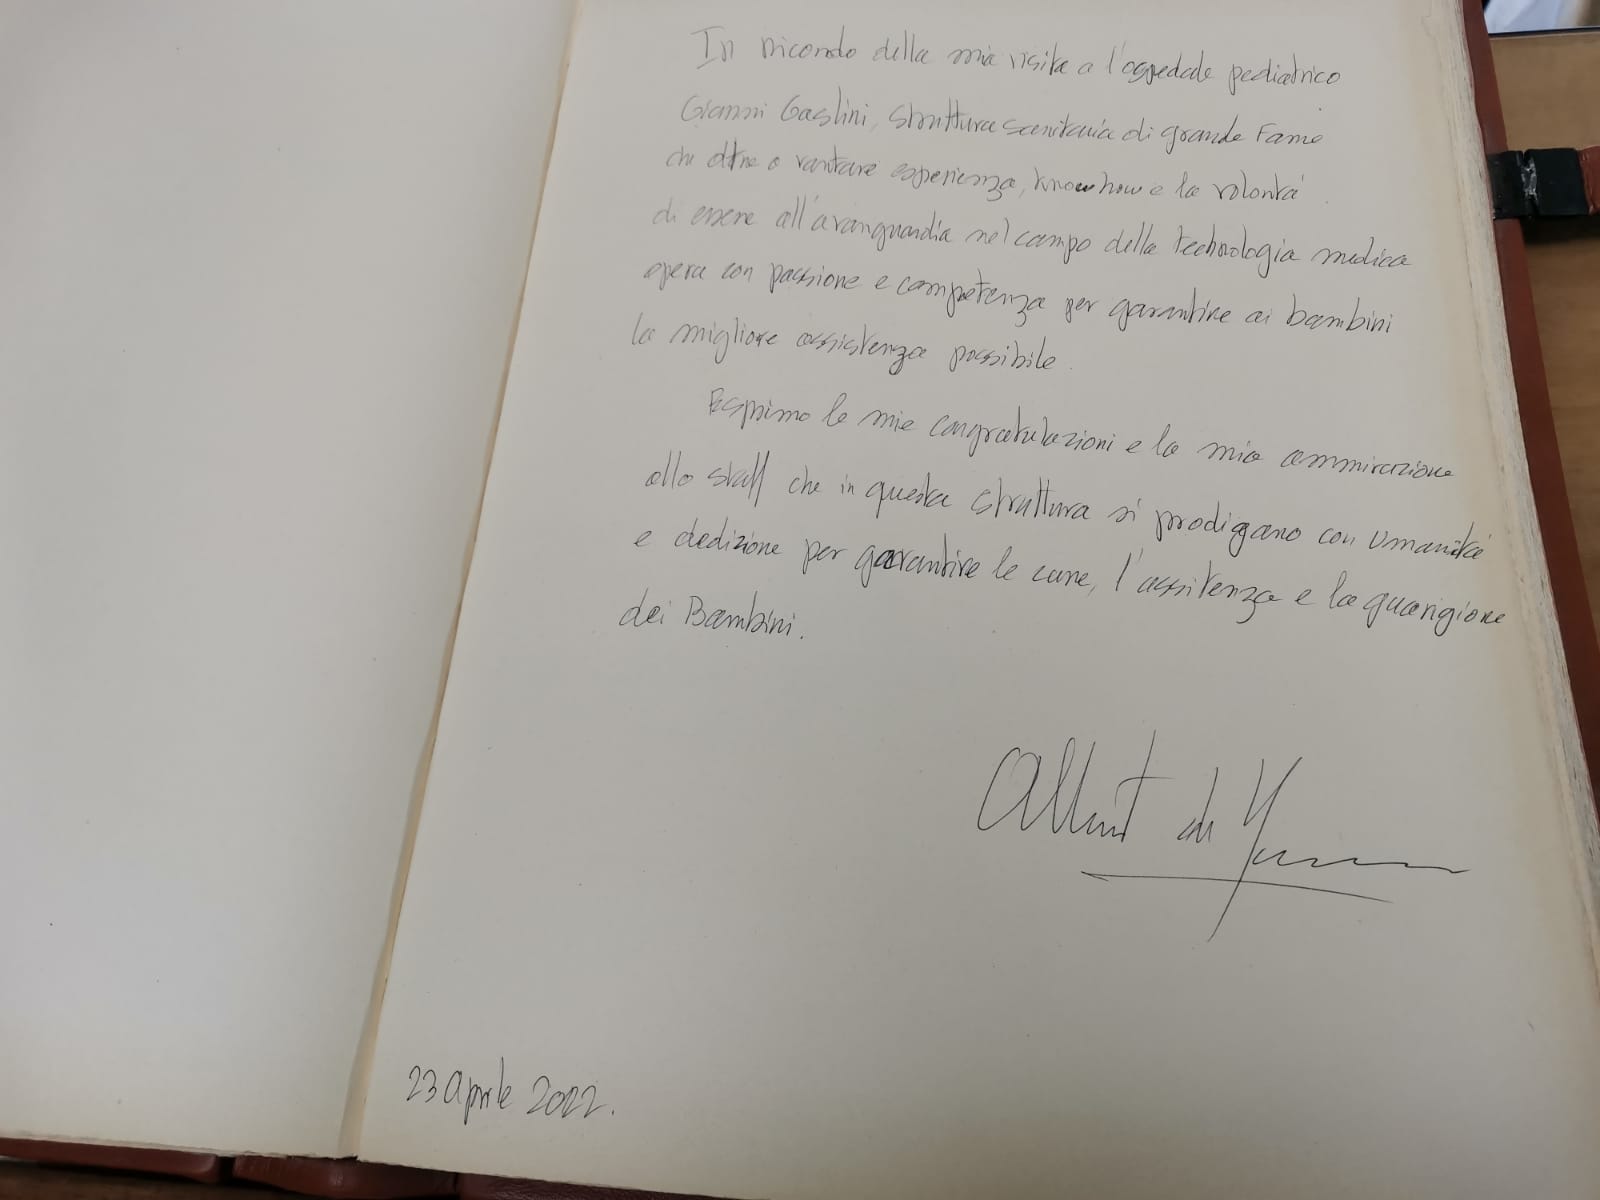 In ricordo della mia visita a l'ospedale pediatrico
Gianni Gaslini, struttura sanitaria di grande Fame
che oltre a vantare esperienza, know how e la volontà
di essere all'avanguardia nel campo della technologia medica
opera con passione e competenza per garantire ai bambini
la migliore assistenza possibile.
Esprimo le mie congratulazioni e la mia ammirazione
allo staff che in questa struttura si prodigano con umanità
e dedizione per garantire le cure, l'assitenza e la guarigione
dei Bambini.
Albert de
23 Aprile 2022.